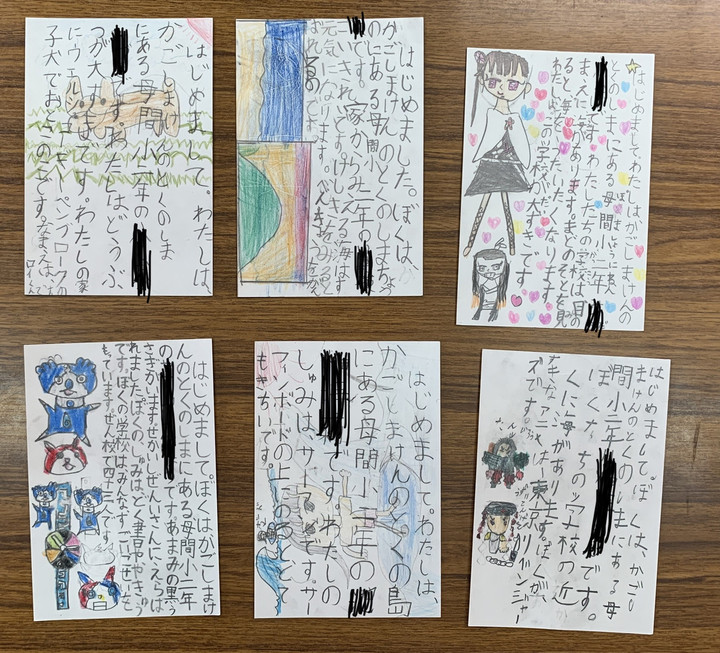 はじめまして。わたしは、
かごしまけんのとくのしま
にある母間小二年の
です。わたしはどうぶ
つが大すきです。わたしの家
に
子犬でおさのこです。なまえは、
はじめました。ぼくは、
かごしまけんのとくのしまちょう
のにある母間小二年の
です。家からみえる海はす
ごいきれいです。けしきをみると
元気になります。べんきょうもがん
ばれるのです。
はじめまして。わたしはかごしまけんの
とくのしまにある母間小二年
です。わたしたちの学校は、目の
まえに海があります。まどのそとを見
ると海を たくなります。
わたしはこの学校が大すきです。
はじめまして。ぼくはかごしまけ
んのとくのしまにある母間小二年
の です。あまみの黒う
さぎがいますせかいしぜんいさんに、えらば
れました。ぼくのしゅみはどく書やきゅう
です。ぼくの学校はみんなすごい
もっています。ぜん校で四十
はじめまして。わたしは、
かごしまけんのとくの島
にある母間小二年の
です。わたしの
しゅみはサーフィンです。サー
フィンボードの上にのるととて
もきもちいです。
はじめまして。ぼくは、かごし
まけんのとくのしまにある母
間小二年 です。
ぼくたちの学校の近
くに海があります。ぼくが
すきなアニメは東京リベンジャー
ズです。